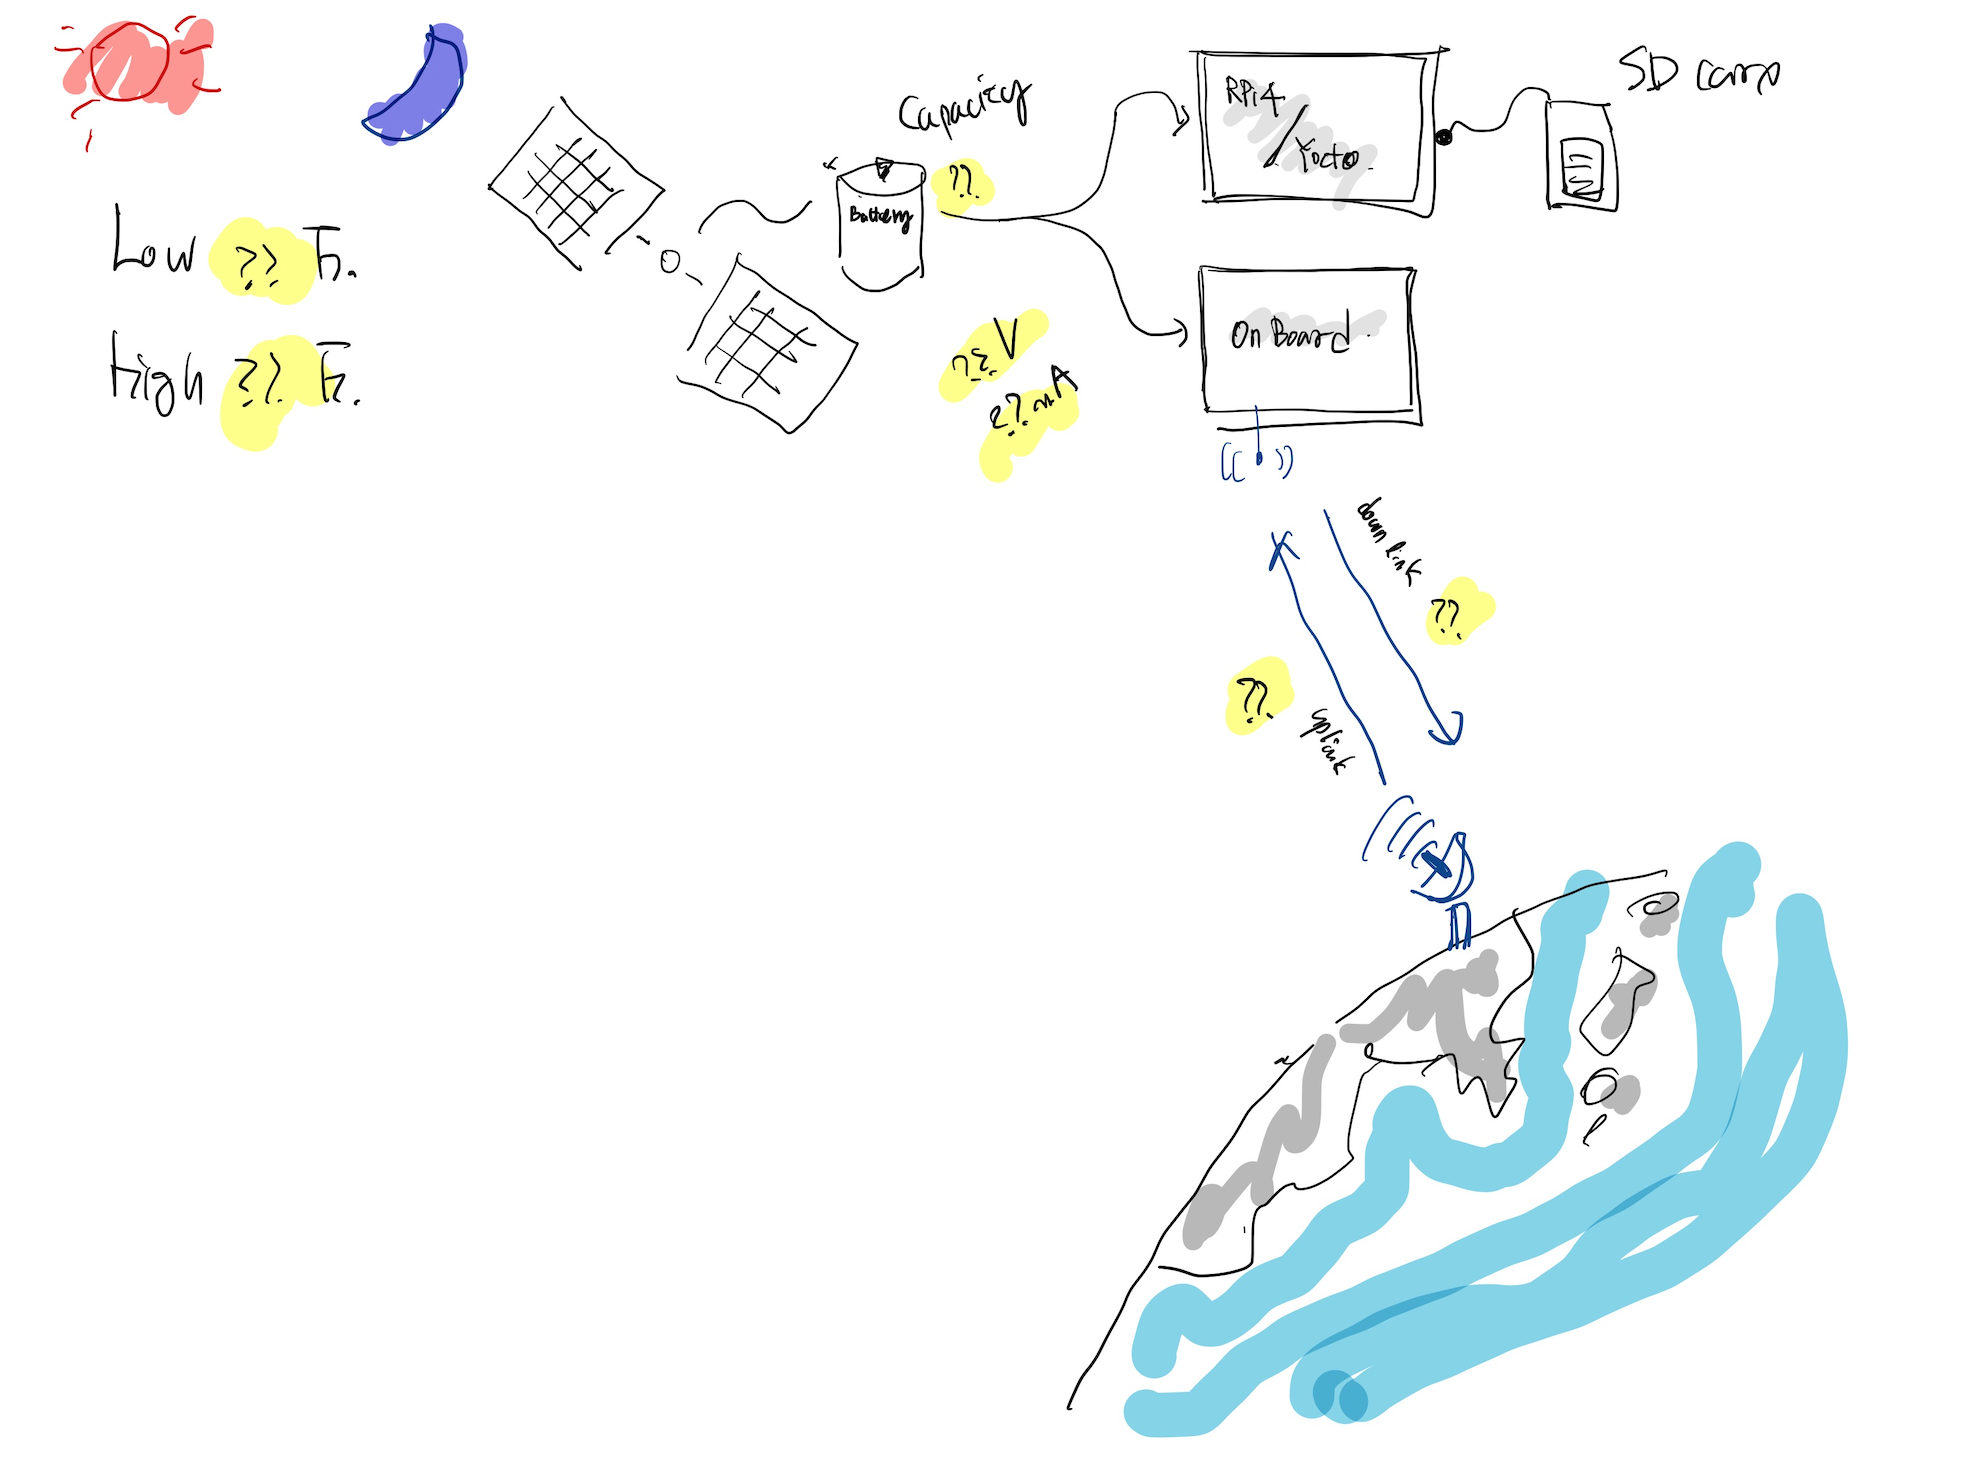 Low ?? F.
High ?? F.
Capacity
??
Battery
??V
??mA
RPi4
/Yocto.
SD
On Board.
down link
??
??.
uplink